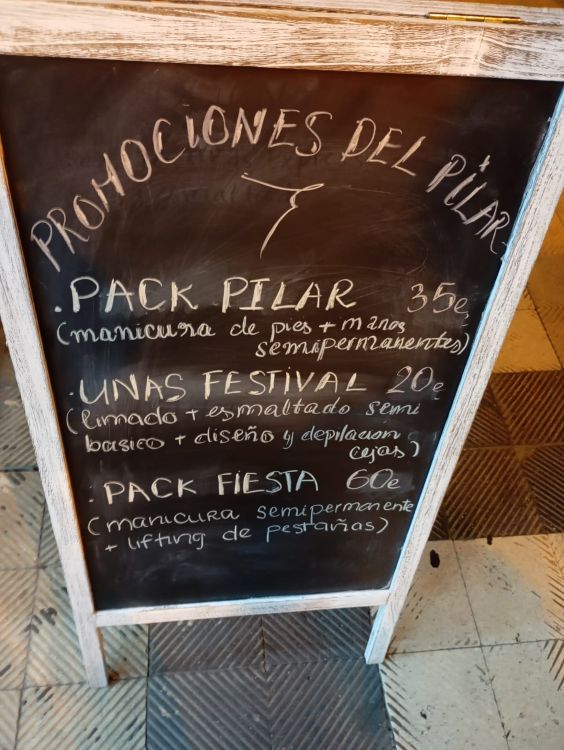 PROMOCIONES DEL PILAR
.PACK PILAR 35e
(manicura de pies + manos
semipermanentes)
.UNAS FESTIVAL 20e
(limado + esmaltado semi
basico + diseño y depilacion
cejas)
: PACK FIESTA 60e
(manicura semipermanente
+ lifting de pestañas)